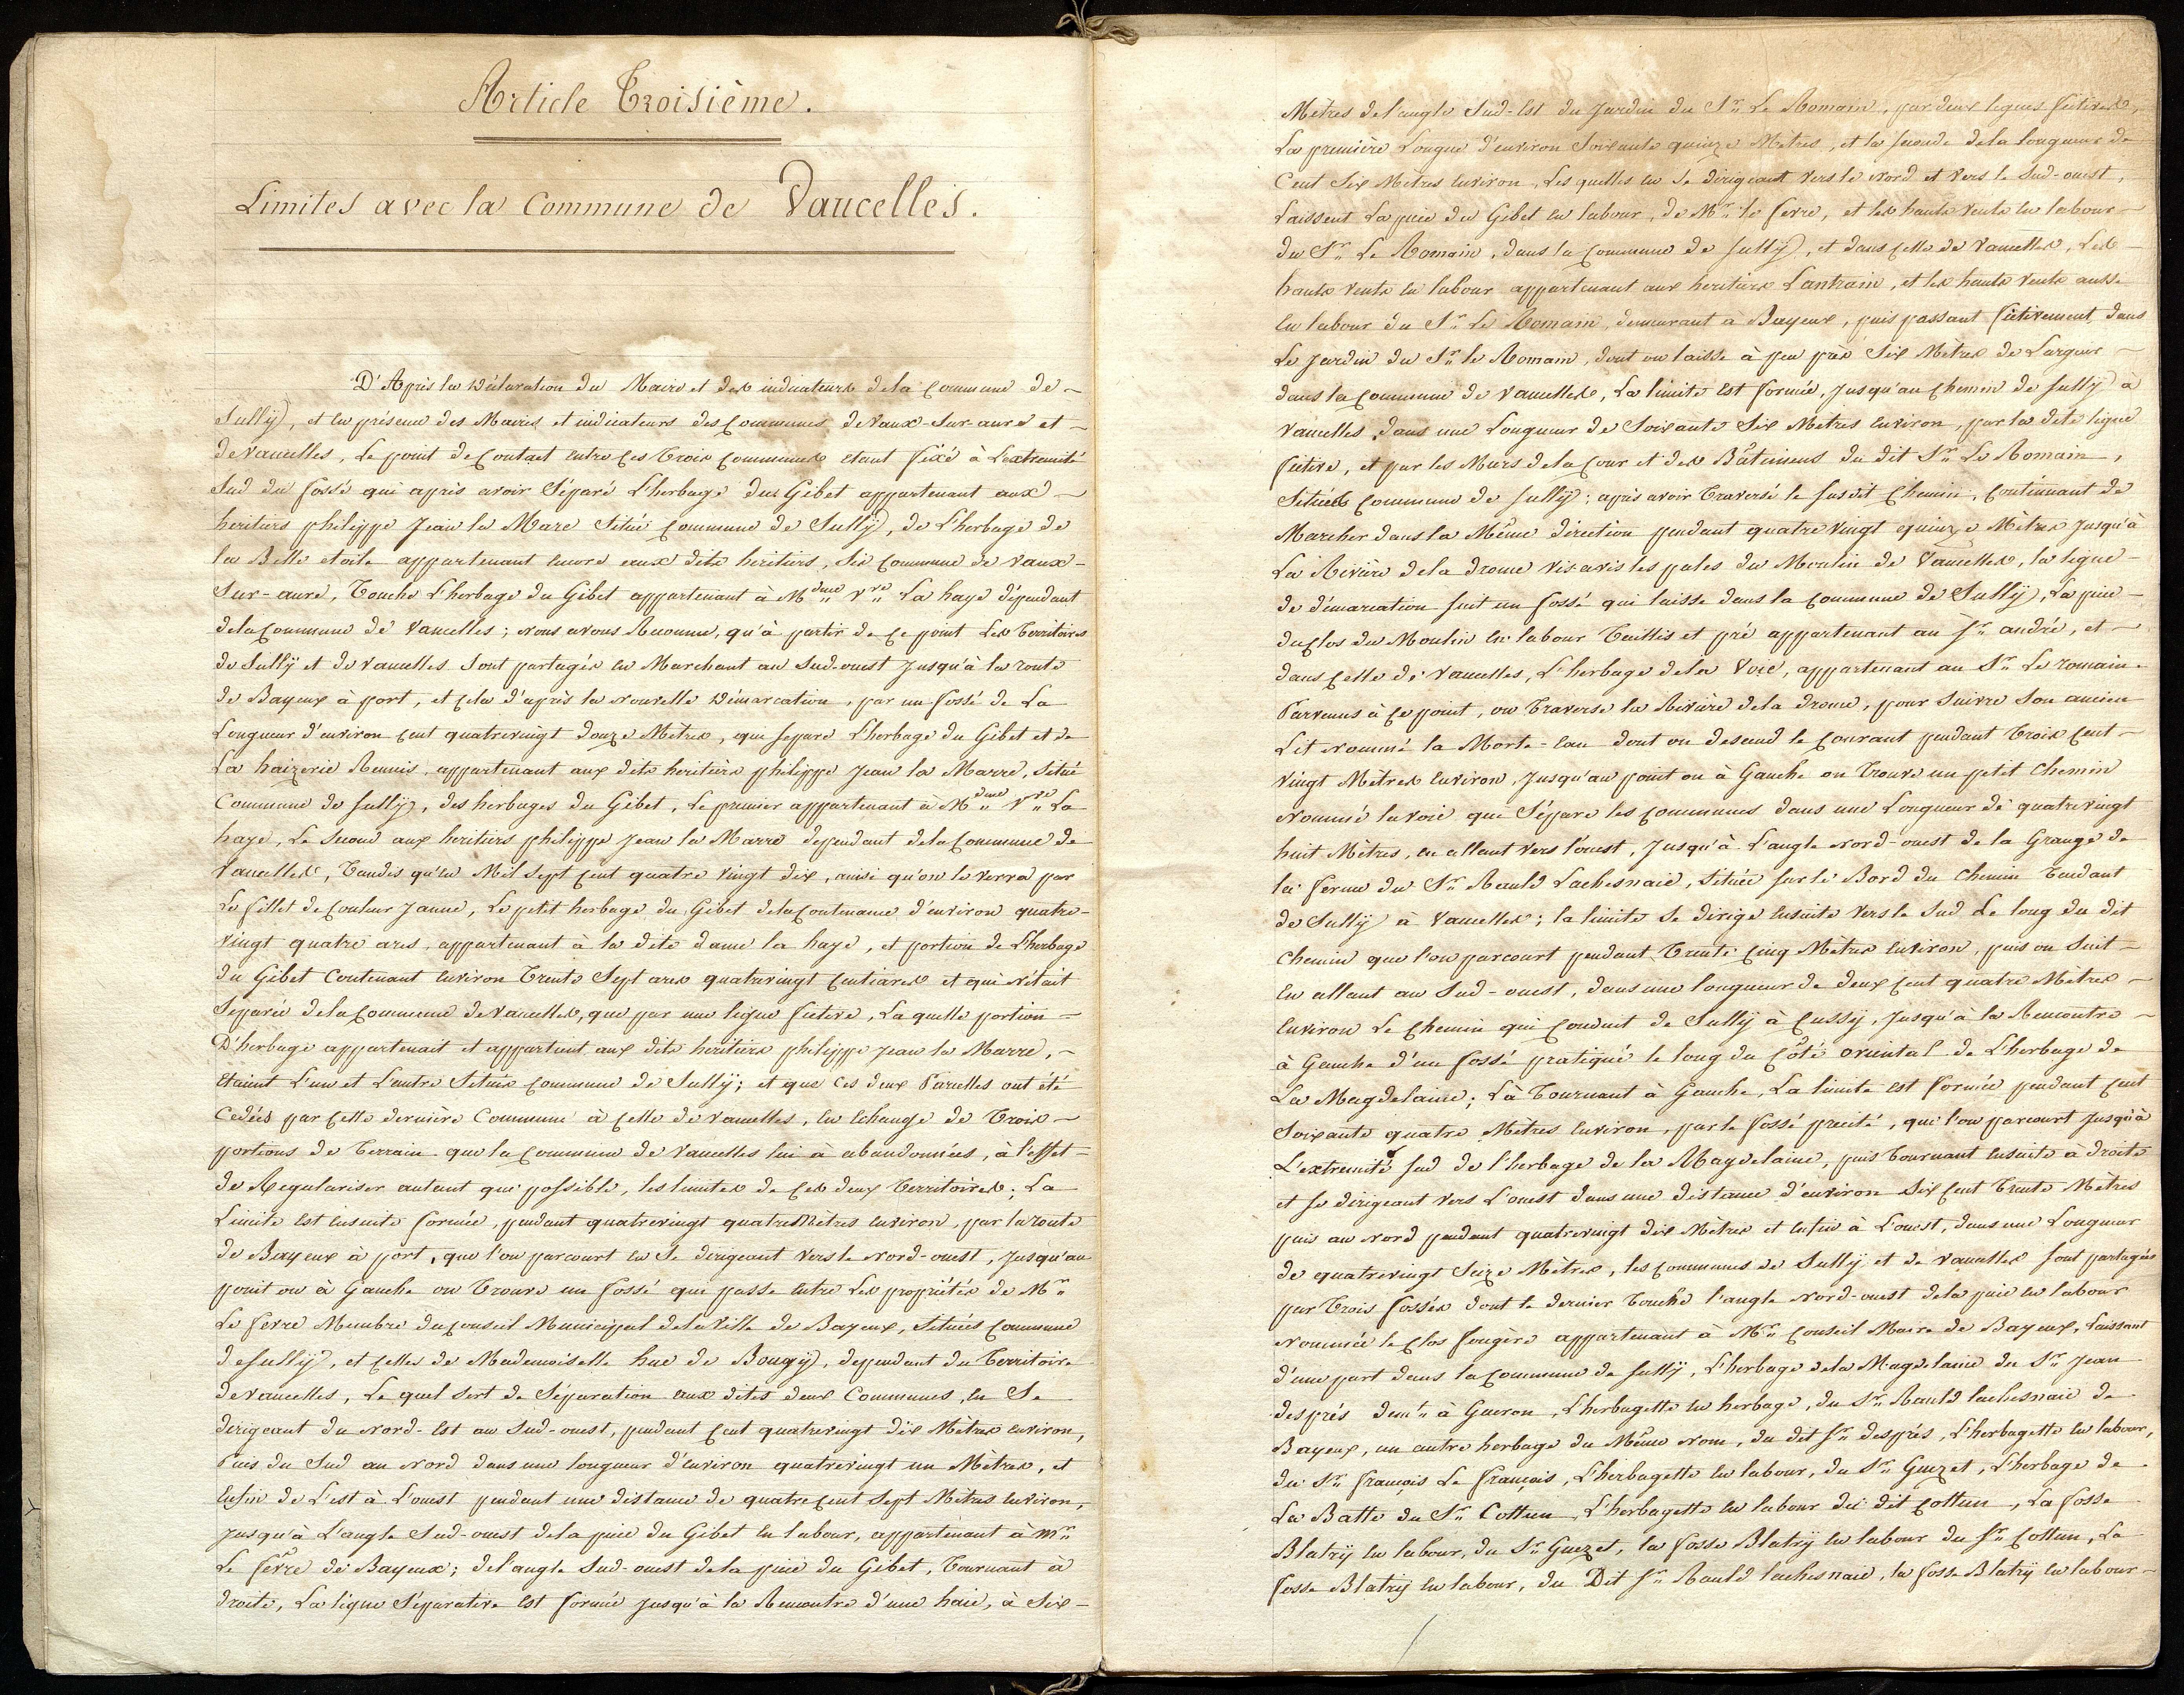 Article Troisième.
Limites avec la Commune de Vaucelles.
D'Après la Déclaration du Maire et des indicateurs de la Commune de -
Sully, et en présence des Maires et indicateurs des Communes de Vaux-Sur-aure et -
de Vaucelles, Le point de Contact entre Ces Trois Communes étant fixé à L'extremité
Sud du fossé qui après avoir Séparé L'herbage du Gibet appartenant aux -
heritiers philippe Jean la Mare Situé Commune de Sully, de L'herbage de
la Belle etoile appartenant encore aux dits heritiers, Sis Commune de Vaux-
Sur-aure, Touche L'herbage du Gibet appartenant à Mdme Vve La haye dépendant
de la Commune de Vaucelles; nous avons Reconnu, qu'à partir de Ce point Les Territoires
de Sully et de Vaucelles Sont partagés en Marchant au Sud-ouest Jusqu'à la route
de Bayeux à port, et Cela d'après la nouvelle Démarcation, par un fossé de La
Longueur d'environ Cent quatrevingt douze Mètres, qui separe L'herbage du Gibet et de
La haizerie Reunis, appartenant aux dits heritiers philippe Jean la Marre, Situé
Commune de Sully, des herbages du Gibet, Le premier appartenant à Mdme Vve La
haye, Le Second aux heritiers philippe Jean la Marre dependant de la Commune de
Vaucelles, Tandis qu'en Mil Sept Cent quatre Vingt dix, ainsi qu'on le verra par
Le fillet de Couleur Jaune, Le petit herbage du Gibet de la Contenance d'environ quatre-
vingt quatre ares, appartenant à la dite dame la haye, et portion de L'herbage
du Gibet Contenant environ Trente Sept ares quatrevingt Centiares et qui n'était
Separée de la Commune de Vaucelles, que par une ligne fictive, La quelle portion =
D'herbage appartenait et appartient aux dits heritiers philippe Jean la Marre, -
étaient L'un et L'autre Situés Commune de Sully; et que Ces deux Parcelles ont été
Cedées par Cette dernière Commune à Celle de Vaucelles, en echange de Trois -
portions de Terrain que la Commune de Vaucelles lui à abandonnées, à l'effet -
de Regulariser autant que possible, les limites de Ces deux Territoires; La
Limite est ensuite formée, pendant quatrevingt quatre Mètres environ, par la route
de Bayeux à port, que l'on parcourt en Se dirigeant vers le Nord-ouest, Jusqu'au
point ou à Gauche on Trouve un fossé qui passe entre Les propriétés de Mr
Le fevre Membre du Conseil Municipal de la Ville de Bayeux, Situées Commune
de Sully, et Celles de Mademoiselle hue de Bougy, dependant du Territoire
de Vaucelles, Le quel Sert de Séparation aux dites deux Communes, en Se
dirigeant du Nord-Est au Sud-ouest, pendant Cent quatrevingt dix Mètres environ,
Puis du Sud au Nord dans une longueur d'environ quatrevingt un Mètres, et
enfin de L'est à L'ouest pendant une distance de quatre Cent Sept Mètres environ,
Jusqu'à L'angle Sud-ouest de la piece du Gibet en labour, appartenant à Mr
Le fevre de Bayeux; de l'angle Sud-ouest de la piece du Gibet, Tournant à
droite, La ligne Séparative est formée Jusqu'à la Rencontre d'une haie, à Six -
Mètres de l'angle Sud-Est du Jardin du Sr Le Romain, par deux lignes fictives,
La première Longue d'environ Soixante quinze Mètres, et la Seconde de la Longueur de
Cent Six Mètres environ, Les quelles en Se dirigeant vers le Nord et vers le Sud-ouest,
Laissent La piece du Gibet en labour, de Mr le fevre, et les hauts Vents en labour -
du Sr Le Romain, dans la Commune de Sully, et dans Celle de Vaucelles, Les -
hauts Vents en labour appartenant aux heritiers Lantrain, et les hauts Vents aussi
en labour du Sr Le Romain, demeurant à Bayeux, puis passant fictivement dans
Le Jardin du Sr le Romain, dont on laisse à peu près Six Mètres de Largeur -
dans la Commune de Vaucelles, La limite est formée, Jusqu'au Chemin de Sully à
Vaucelles, dans une Longueur de Soixante Six Mètres environ, par la dite ligne
fictive, et par les Murs de la Cour et des Bâtimens du dit Sr Le Romain,
Situées Commune de Sully; après avoir Traversé le Susdit Chemin, Continuant de
Marcher dans la Même direction pendant quatre vingt quinze Mètres Jusqu'à
La Rivière de la drome vis avis les pales du Moulin de Vaucelles, la ligne -
de démarcation Suit un fossé qui laisse dans la Commune de Sully, La piece -
du Clos du Moulin en labour Taillis et pré appartenant au Sr andré, et -
dans Celle de Vaucelles, L'herbage de la Voie, appartenant au Sr Le romain.
Parvenus à Ce point, on Traverse la Rivière de la drome, pour Suivre Son ancien
Lit nommé la Morte-eau dont on descend le Courant pendant Trois Cent -
vingt Mètres environ, Jusqu'au point ou à Gauche on Trouve un petit Chemin
Nommé la voie qui Sépare les Communes dans une Longueur de quatrevingt
huit Mètres, en allant vers l'ouest, Jusqu'à L'angle Nord-ouest de la Grange de
la ferme du Sr Rauld Lachesnaie, Située Sur le Bord du Chemin Tendant
de Sully à Vaucelles; la limite Se dirige ensuite vers le Sud Le long du dit
Chemin que l'on parcourt pendant Trente Cinq Mètres environ, puis on Suit -
en allant au Sud-ouest, dans une longueur de deux Cent quatre Mètres -
environ Le Chemin qui Conduit de Sully à Cussy, Jusqu'à la Rencontre -
à Gauche d'un fossé pratiqué le long du Côté oriental de L'herbage de
La Magdelaine; Là Tournant à Gauche, La limite est formée pendant Cent
Soixante quatre Mètres environ, par le fossé precité, que l'on parcourt Jusqu'à
L'extremité Sud de l'herbage de la Magdelaine, puis Tournant ensuite à droite
et Se dirigeant vers L'ouest dans une distance d'environ Six Cent Trente Mètres
puis au Nord pendant quatrevingt dix Mètres et enfin à L'ouest, dans une Longueur
de quatrevingt Seize Mètres, les Communes de Sully et de Vaucelles Sont partagées
par Trois fossés dont le dernier Touche l'angle Nord-ouest de la piece en labour
Nommée le Clos fougère appartenant à Mr Conseil Maire de Bayeux, Laissant
d'une part dans la Commune de Sully, L'herbage de la Magdelaine du Sr Jean
després demt à Gueron, L'herbagette en herbage, du Sr Rauld lachesnaie de
Bayeux, un autre herbage du Même Nom, du dit Sr després, L'herbagette en labour,
du Sr françois Le français, L'herbagette en labour, du Sr Guezet, L'herbage de
La Batte du Sr Cottun, L'herbagette en labour du dit Cottun, La fosse
Blatry en labour, du Sr Guezet, la fosse Blatry en labour du Sr Cottun, La
fosse Blatry en labour, du Dit Sr Rauld lachesnaie, la fosse Blatry en labour -